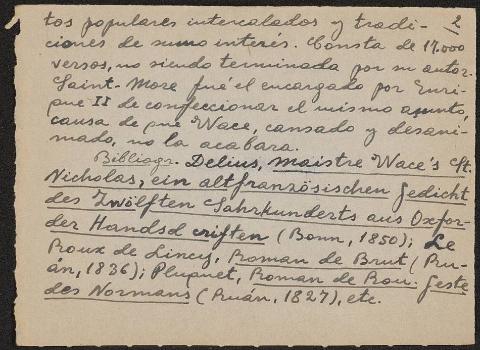 2
tos populares intercalados y tradi-
ciones de sumo interés. Consta de 17.000
versos, no siendo terminada por su autor.
Saint-More fué el encargado por Enri-
que II de confeccionar el mismo asunto,
causa de que Wace, cansado y desani-
mado, no la acabara.
Bibliogr. Delius, maistre Wace's St.
Nicholas, ein altfranzösischen Gedicht
des Zwölften Jahrhunderts aus Oxfor-
der Handsd criften (Bonn, 1850); Le
Roux de Lincy, Roman de Brut (Ru-
án, 1836); Pluquet, Roman de Rou. Geste
des Normans (Ruán, 1827), etc.